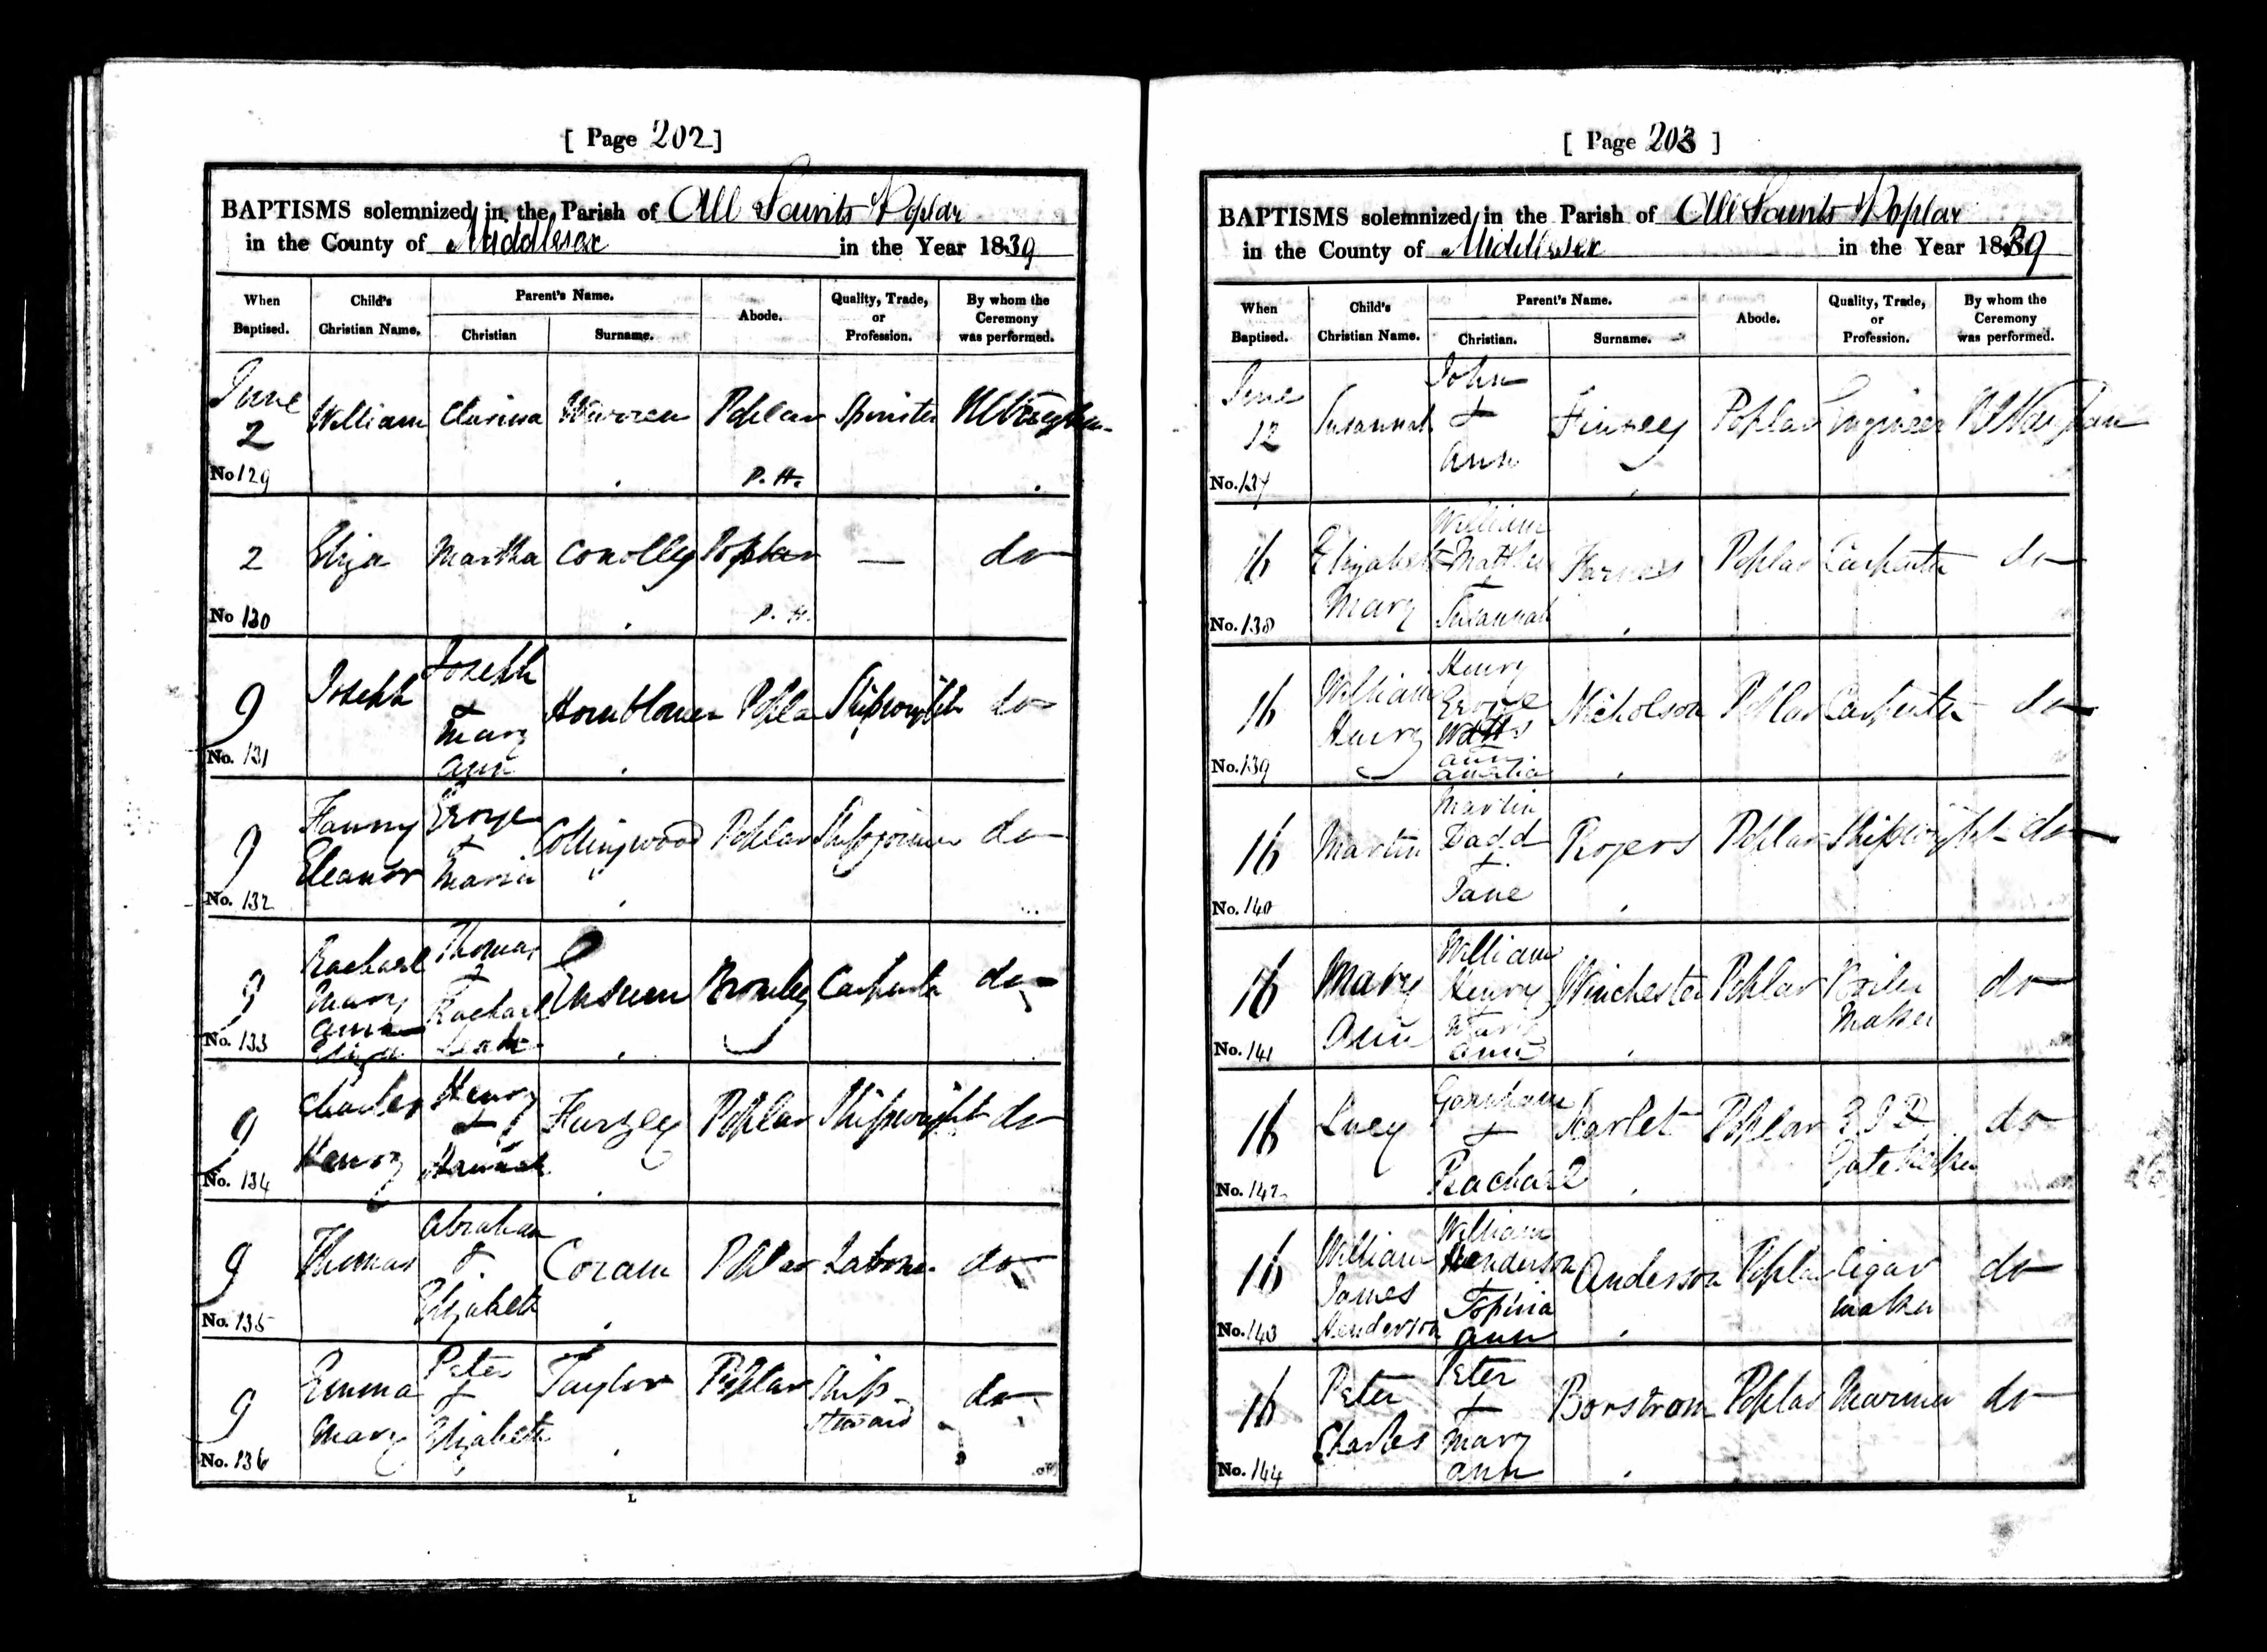 [ Page 202 ]
BAPTISMS solemnized in the Parish of All Saints Poplar
in the County of Middlesex in the Year 1839
When Baptised. Child's Christian Name. Parent's Name. Christian Surname. Abode. Quality, Trade, or Profession. By whom the Ceremony was performed.
June 2 William Clarissa Warren Poplar Spinster
No 129 P. H.
2 Eliza Martha Conolly Poplar — do
No 130 P. H.
9 Joseph Joseph & Mary Ann Hornblower Poplar Shipwright do
No. 131
9 Fanny Eleanor George & Maria Collingwood Poplar Shipjoiner do
No. 132
9 Rachael Mary Thomas & Rachael Bromley Carpenter do
No. 133
9 Charles Henry Henry & Hannah Furzey Poplar Shipwright do
No. 134
9 Thomas Abraham & Elizabeth Coram Poplar Labourer do
No. 135
9 Emma Mary Peter & Elizabeth Taylor Poplar Ship Steward do
No. 136
L
[ Page 203 ]
BAPTISMS solemnized in the Parish of All Saints Poplar
in the County of Middlesex in the Year 1839
When Baptised. Child's Christian Name. Parent's Name. Christian. Surname. Abode. Quality, Trade, or Profession. By whom the Ceremony was performed.
June 12 Susannah John & Ann Poplar Engineer
No. 137
16 Elizabeth Mary William Matthew & Susannah Poplar Carpenter do
No. 138
16 William Henry Henry George Watts & Ann Amelia Nicholson Poplar Carpenter do
No. 139
16 Martin Martin Dadd & Jane Rogers Poplar Shipwright do
No. 140
16 Mary Ann William Henry & Mary Ann Winchester Poplar Boiler Maker do
No. 141
16 Lucy & Rachael Scarlet Poplar Gate Keeper do
No. 142
16 William James Henderson William Henderson & Ann Anderson Poplar Cigar maker do
No. 143
16 Peter Charles Peter & Mary Ann Borstrom Poplar Mariner do
No. 144